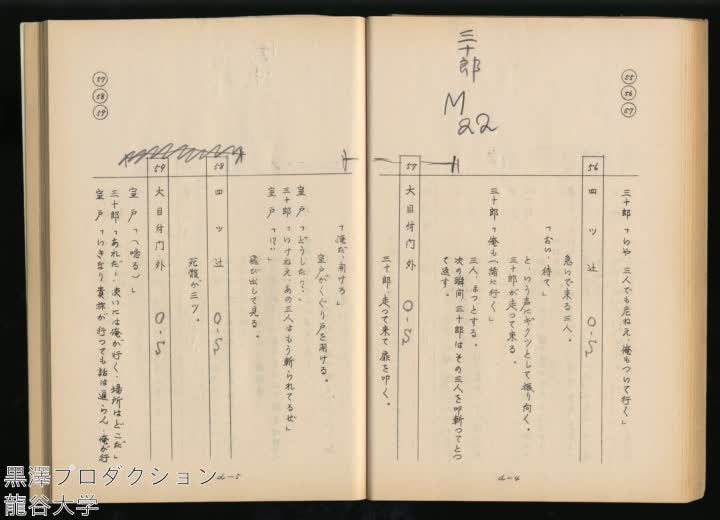 三十郎
M
22
55
56
57
三十郎「いや、三人でも危ねえ、俺もついて行く」
56 四ッ辻 O・S
急いで来る三人。
「おい、待て」
と、いう声にギクッとして振り向く。
三十郎が走って来る。
三十郎「俺も一緒に行く」
三人、ほっとする。
次の瞬間、三十郎はその三人を叩斬ってとって返す。
57 大目付門外 O・S
三十郎、走って来て扉を叩く。
d-4
57
58
59
「俺だ、開けろ」
室戸がくぐり戸を開ける。
室戸「どうした?」
三十郎「いけねえ、あの三人はもう斬られてるぜ」
室戸「!?」
飛び出して見る。
58 四ッ辻
死骸が三ツ。
59 大目付門外 O・S
室戸「(唸る)」
三十郎「あれだ!次いには俺が行く、場所はどこだ」
室戸「いきなり貴様が行っても話は通らん、俺が行
d-5
黒澤プロダクション
龍谷大学